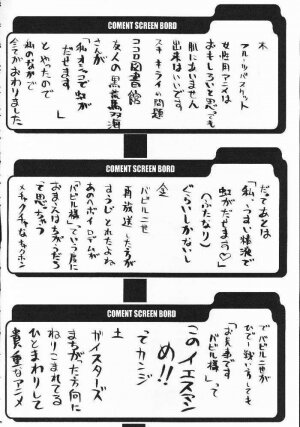 COMENT SCREEN BORD
木
フルーツバスケット
女性用アニメは
おもしろいと思っても
肌にあいません
出来はいいです
スキキライの問題
ココロ図書館
友人の黒荻馬羽海
さんが
「私オシッコで虹が
だせます」
とやったので
私のなかで
全てがおわりました
COMENT SCREEN BORD
だってあとは
「私、うすい精液で
虹がだせます♡」
(ふたなり)
ぐらいしかないし
金
バビル二世
再放送したらが
まうじとれたよね
あのヘボイロデムが
「バビル様」っていう度に
おまえはちがうだろ
って思っちゃう
メチャクチャなキッポン
COMENT SCREEN BORD
でバビル二世が
ひでー戦い方しても
「お見事です
バビル様」って
このイエスマン
め!!
ってカンジ
土
ガイスターズ
まちがった方向に
ねりこまれてる
ひとまわりして
貴重なアニメ